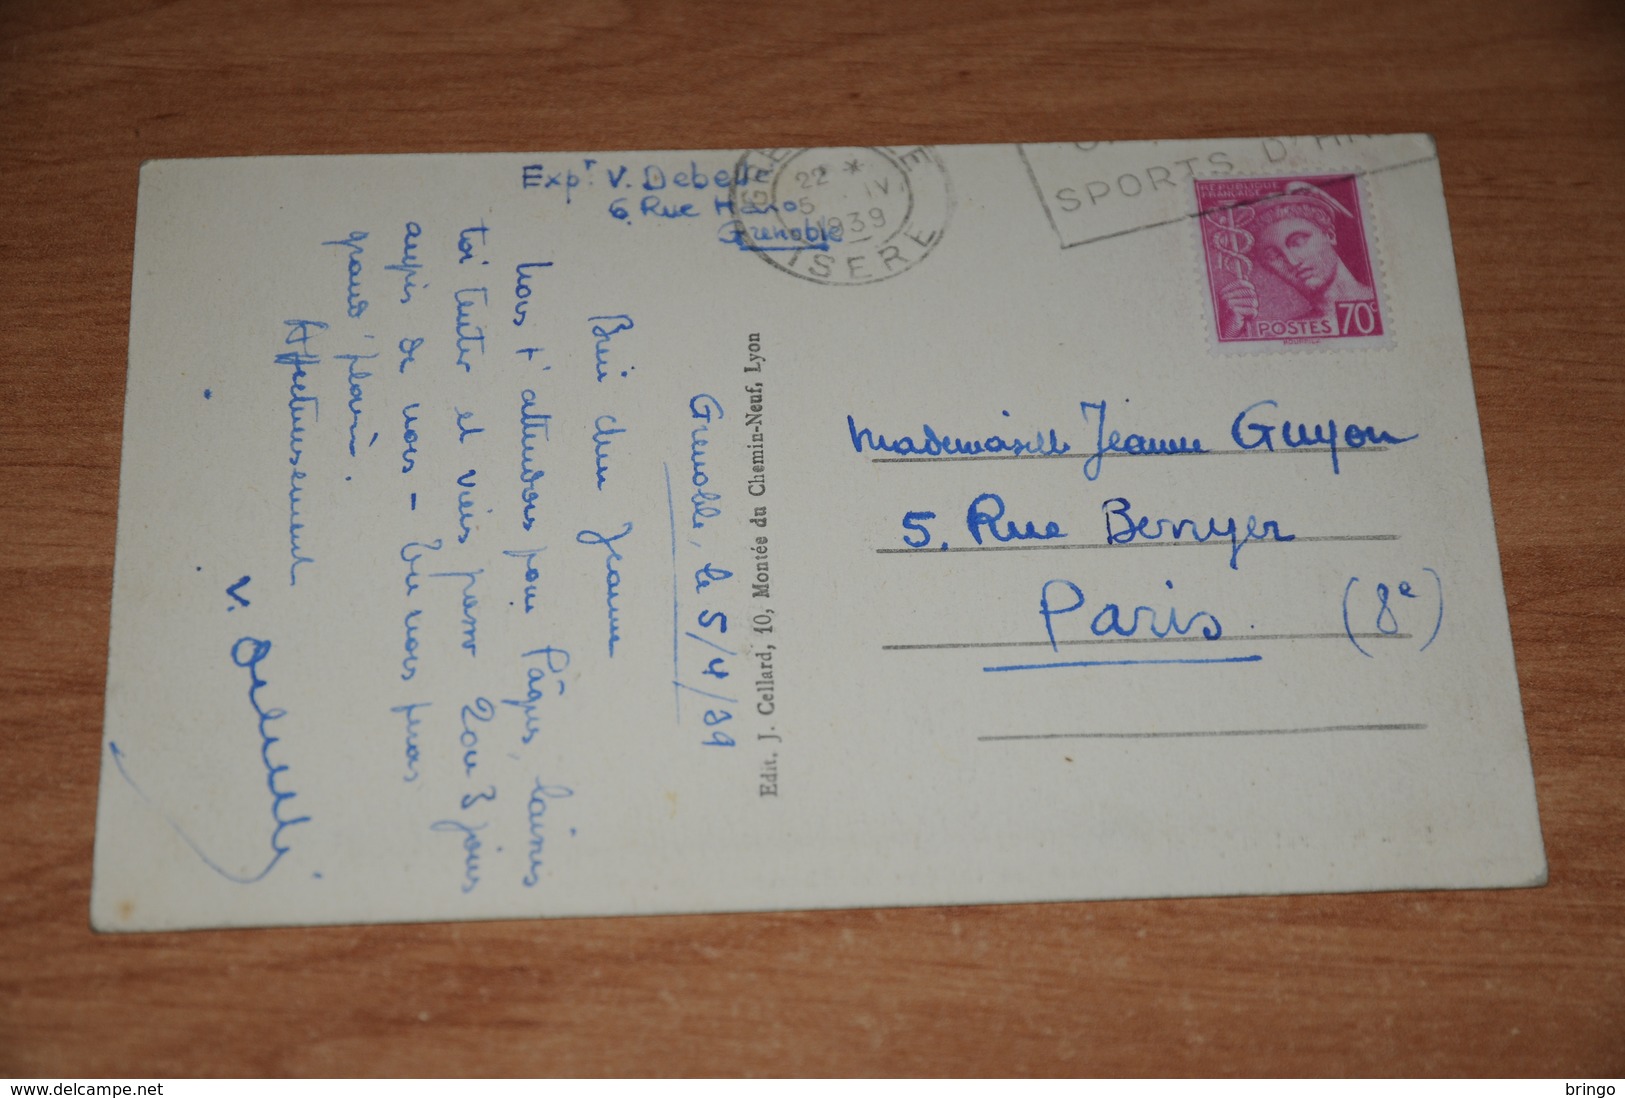 Exp. V. Debel
6. Rue
Grenoble
22 *
5 IV
1939
ISERE
SPORTS D'HI
REPUBLIQUE
FRANÇAISE
POSTES 70c
Grenoble, le 5/4/39
Bien chère Jeanne
Nous t'attendons pour Pâques, laisses
toi tenter et viens passer 2 ou 3 jours
auprès de nous - Tu nous feras
grand plaisir.
Affectueusement
V.
Edit. J. Cellard, 10, Montée du Chemin-Neuf, Lyon
Mademoiselle Jeanne Guyon
5, Rue Berryer
Paris (8e)
https://www.delcampe.net
bringo